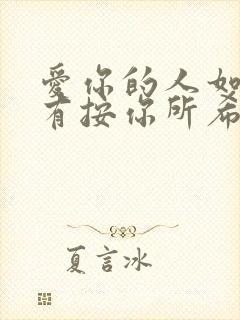 爱你的人如
有按你所希
夏言冰